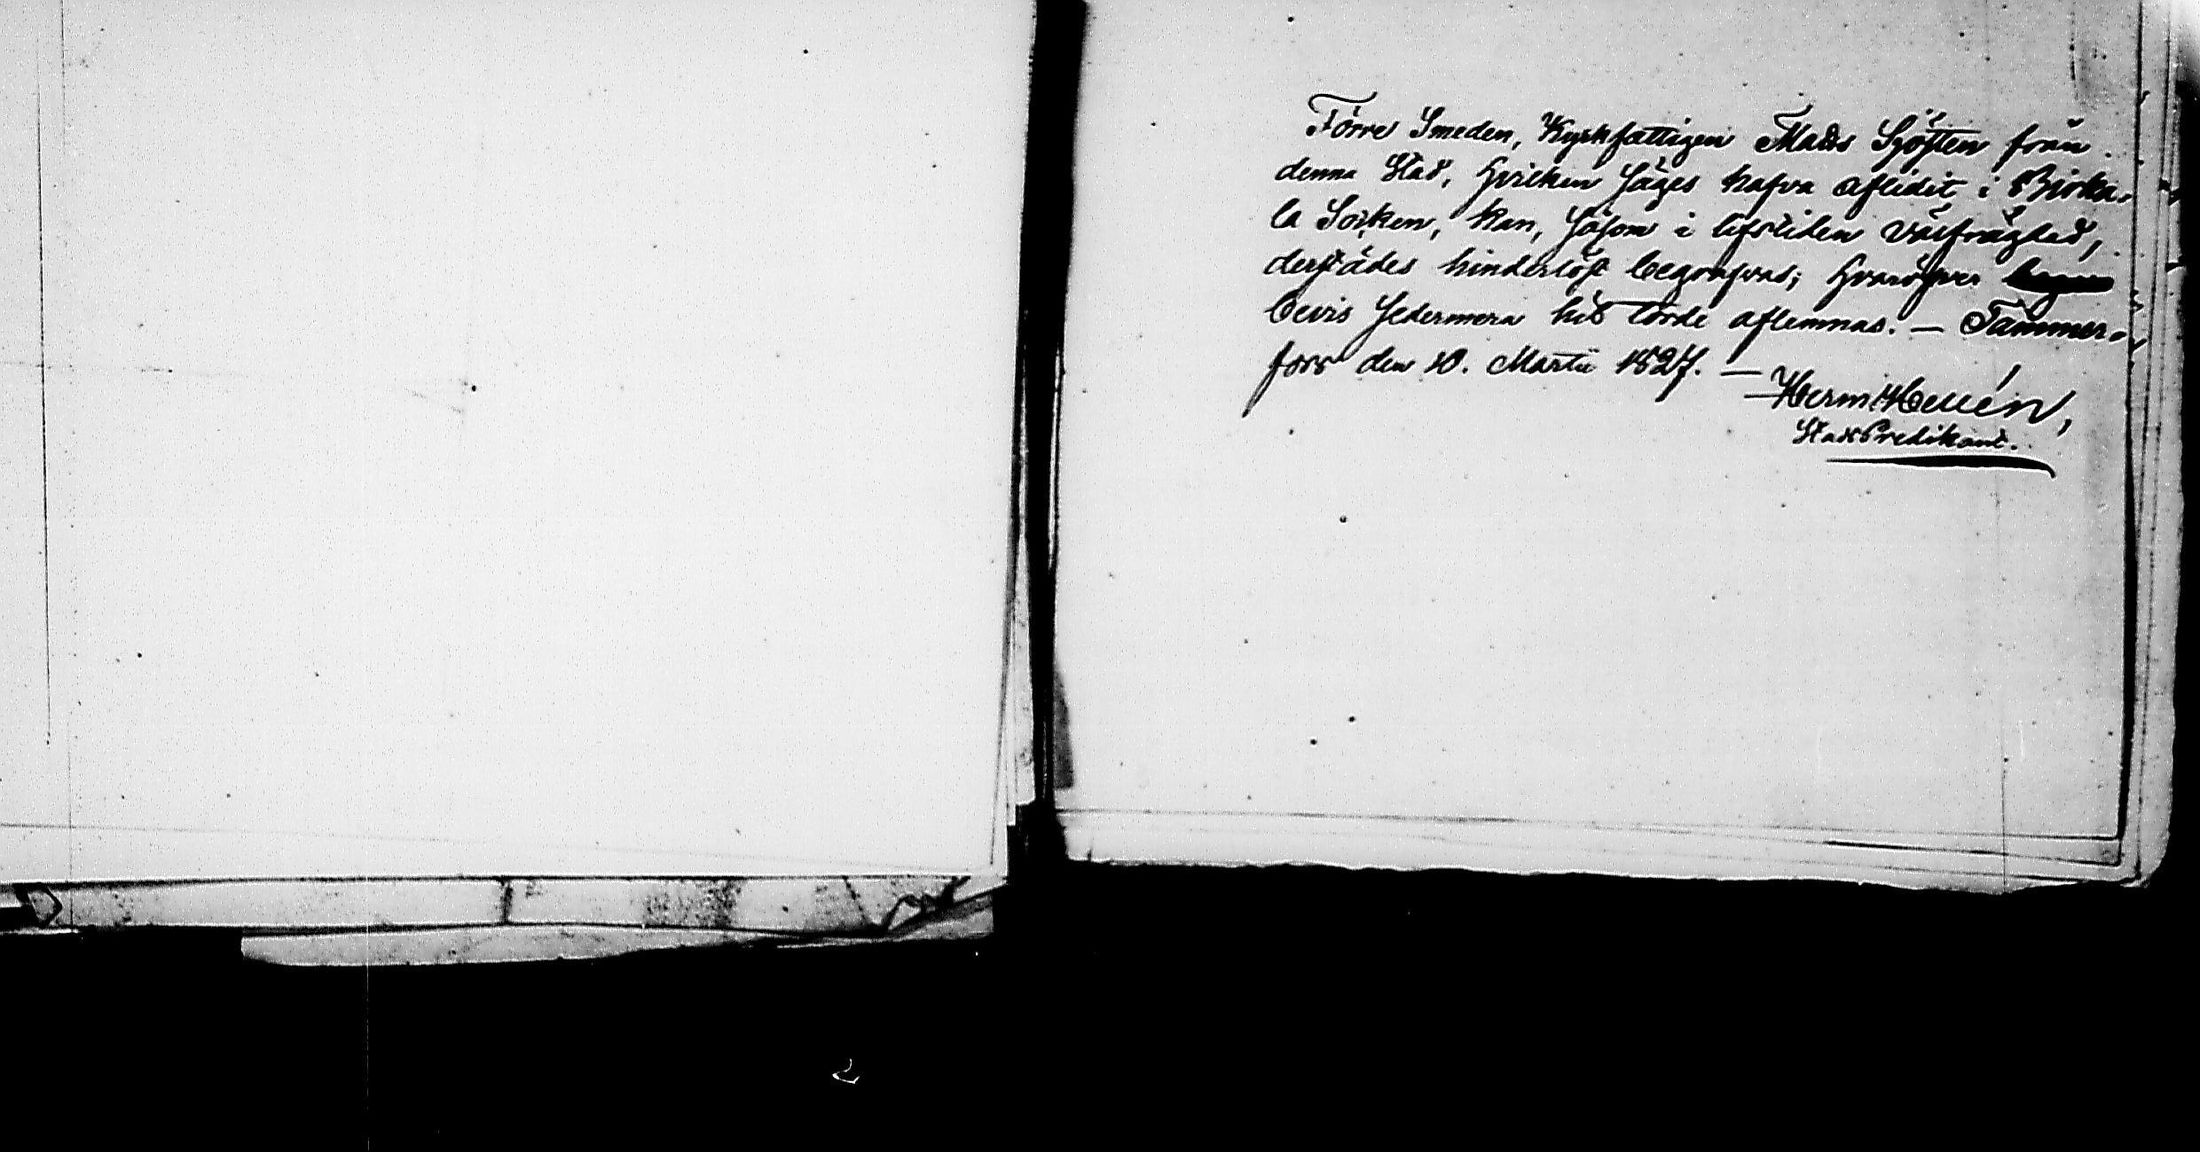 Förre Smeden, Kyrkfattigen Matts Sjösten från
denna Stad, hvilken säges hafva aflidit i Birka-
la Socken, kan, såsom i lifstiden välfrägdad,
derstädes hinderlöst begrafvas; hvaröfver
bevis sedermera hit torde aflemnas. — Tammer-
fors den 10. Martii 1827. —
Herm. Hellén,
StadsPredikant.